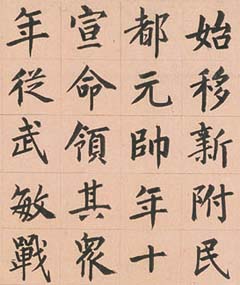 始移新附民
都元帥年十
宣命領其眾
年從武敏戰